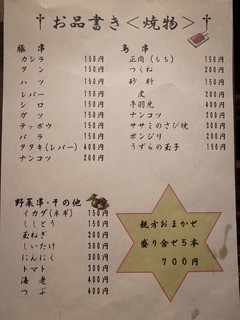 †お品書き<焼物>†
豚串
カシラ 150円
タン 150円
ハツ 150円
レバー 150円
シロ 150円
ガツ 150円
テッポウ 150円
バラ 150円
タタキ(レバー) 400円
ナンコツ 200円
鳥串
正肉(もも) 150円
つくね 200円
砂肝 150円
皮 200円
手羽先 400円
ナンコツ 200円
ササミのさび焼 300円
ボンジリ 200円
うずらの玉子 150円
野菜串・その他
イカダ(ネギ) 150円
ししとう 150円
玉ねぎ 200円
しいたけ 300円
にんにく 300円
トマト 300円
海老 400円
つぶ 400円
親方おまかせ
盛り合せ5本
700円